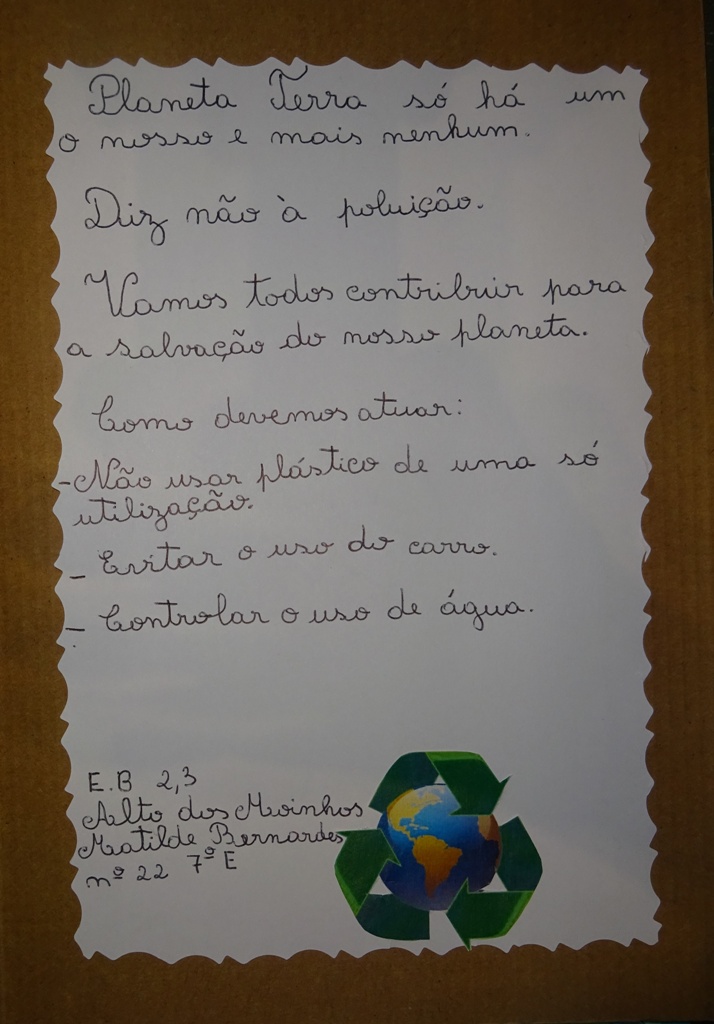 Planeta Terra só há um
o nosso e mais nenhum.
Diz não à poluição.
Vamos todos contribuir para
a salvação do nosso planeta.
Como devemos atuar:
-Não usar plástico de uma só
utilização.
- Evitar o uso do carro.
- Controlar o uso de água.
E.B 2,3
Alto dos Moinhos
Matilde Bernardes
nº 22 7º E